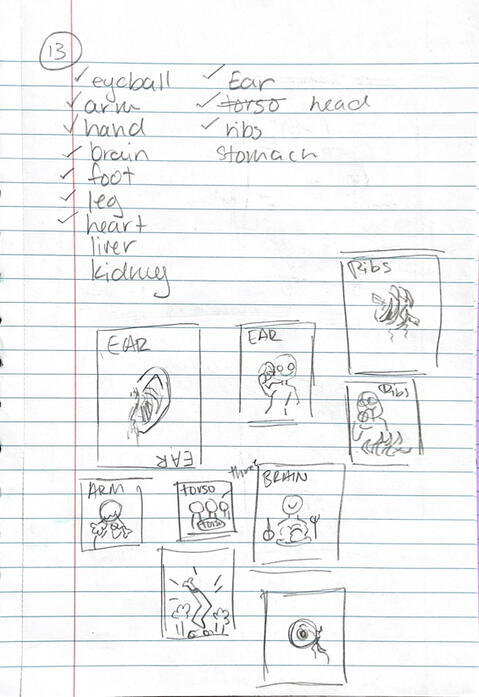 13
eyeball
arm
hand
brain
foot
leg
heart
liver
kidney
Ear
torso head
ribs
stomach
Ribs
EAR
EAR
EAR
Ribs
ARM
torso
torso
BRAIN